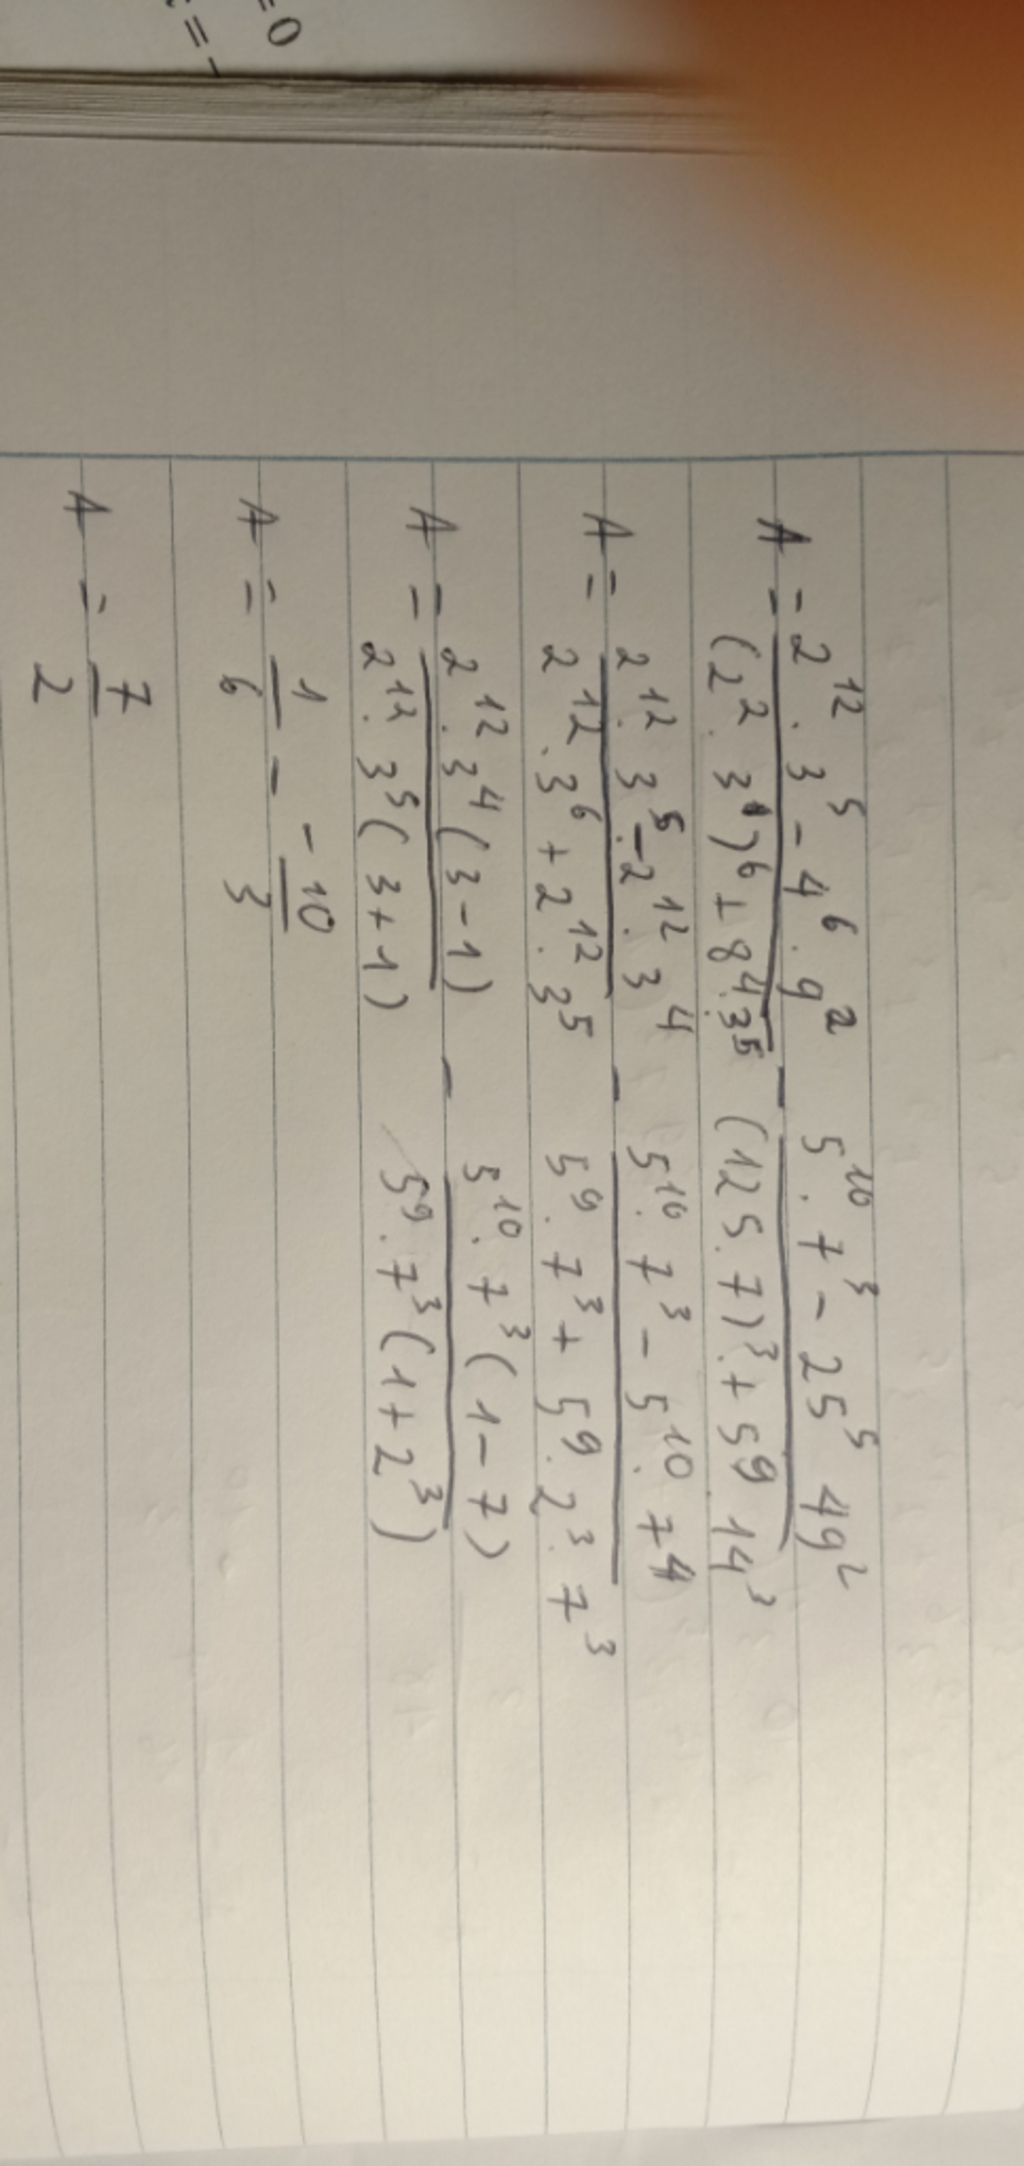 = 0
= -
A = \frac{2^{12} . 3^5 - 4^6 . 9^2}{(2^2 . 3^1)^6 + 8^4 . 3^5} - \frac{5^{10} . 7^3 - 25^5 49^2}{(125.7)^3 + 5^9 14^3}
A = \frac{2^{12} . 3^5 - 2^{12} . 3^4}{2^{12} . 3^6 + 2^{12} . 3^5} - \frac{5^{10} . 7^3 - 5^{10} . 7^4}{5^9 . 7^3 + 5^9 . 2^3 . 7^3}
A = \frac{2^{12} . 3^4 (3 - 1)}{2^{12} . 3^5 (3 + 1)} - \frac{5^{10} . 7^3 (1 - 7)}{5^9 . 7^3 (1 + 2^3)}
A = \frac{1}{6} - - \frac{10}{3}
A = \frac{7}{2}